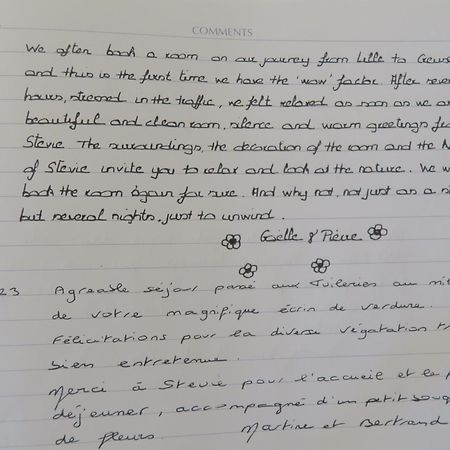 COMMENTS
We often book a room on our journey from Lille to
and this is the first time we have the 'wow' factor. After
hours, stressed in the traffic, we felt relaxed as soon as we
beautiful and clean room, silence and warm greetings
Stevie. The surroundings, the decoration of the room and the
of Stevie invite you to relax and look at the nature. We
book the room again for sure. And why not, not just as a
but several nights, just to unwind.
Gaëlle & Pierre
23 Agreable séjour passé aux Tuileries au
de votre magnifique écrin de verdure.
Félicitations pour la diverse végatation
bien entretenue.
Merci à Stevie pour l'accueil et le
déjeuner, accompagné d'un petit
de fleurs. Martine et Bertrand